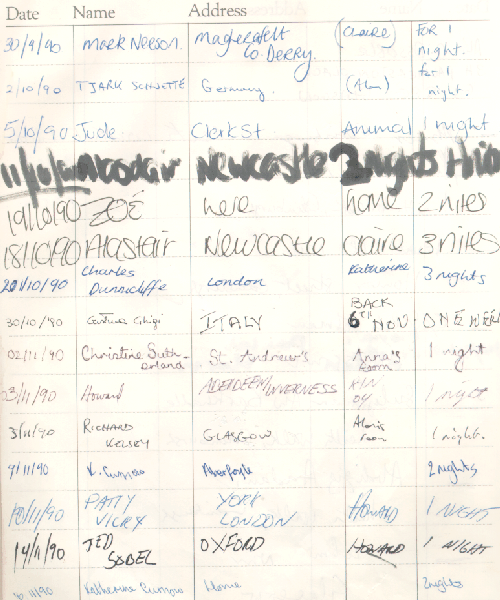 Date Name Address
30/9/90 Mark Neeson. Magherafelt Co. Derry. (Claire) FOR 1 night.
2/10/90 TJARK Germany. (Alan) for 1 night.
5/10/90 Jude Clerk St Animal 1 night
Alasdair Newcastle 3 Nights
19/10/90 ZOË here home 2 nites
18/10/90 Alastair Newcastle Claire 3 nites
Charles Dunnicliffe London Katherine 3 nights
30/10/90 ITALY BACK 6TH NOV. ONE WEEK
02/11/90 Christine Sutherland St. Andrew's Anna's Room 1 night
03/11/90 Howard ABERDEEN/INVERNESS 1 night
3/11/90 RICHARD KELSEY GLASGOW Alan's room 1 night.
9/11/90 Aberfoyle 2 nights
10/11/90 PATTY VICKY YORK LONDON HOWARD 1 NIGHT
14/11/90 TED SOBEL OXFORD HOWARD 1 NIGHT
Katherine Home 2 nights